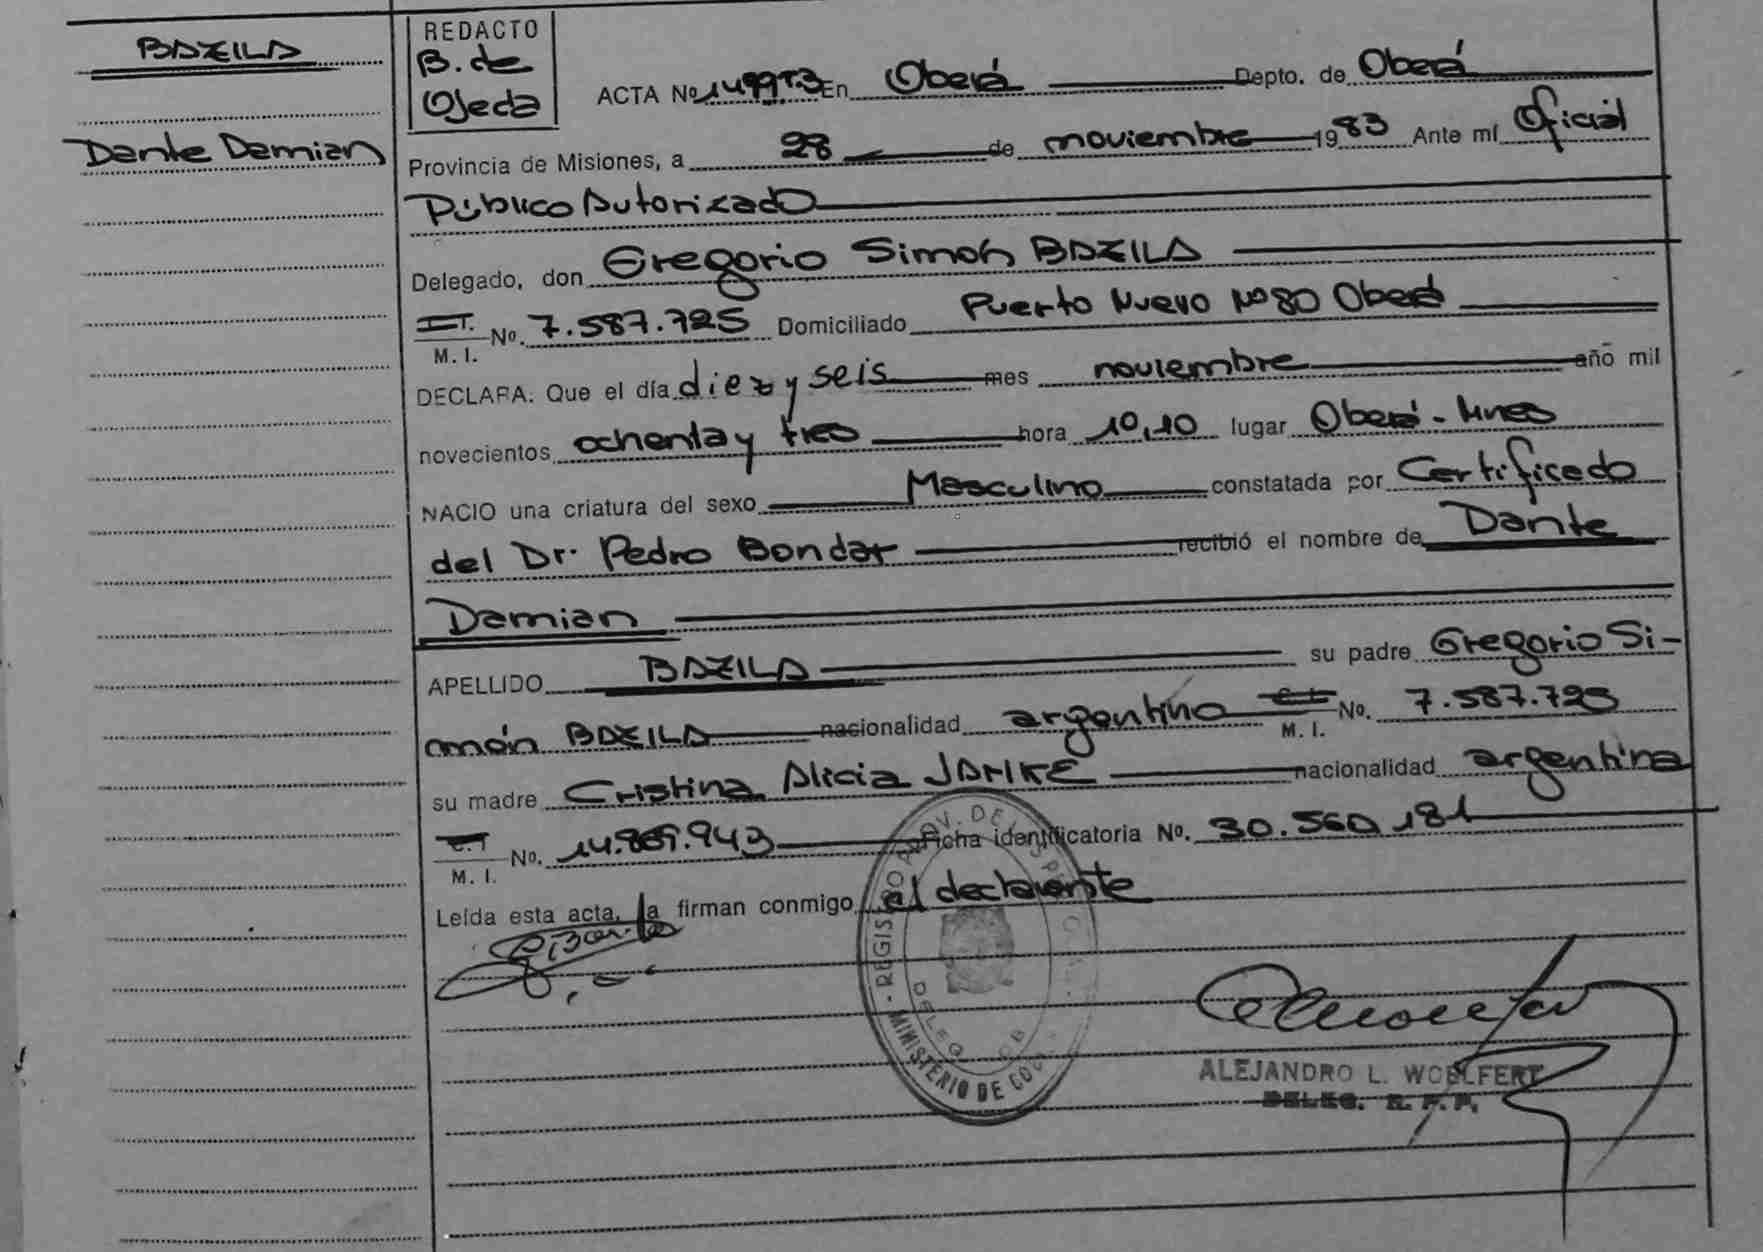 BAZILA
Dante Damian
REDACTO
B. de
Ojeda
ACTA No En Oberá Depto. de Oberá
Provincia de Misiones, a 28 de noviembre 1983 Ante mí Oficial
Público Autorizado
Delegado, don Gregorio Simón BAZILA
M. I. No. 7.587.725 Domiciliado Puerto Nuevo Nº 80 Oberá
DECLARA: Que el día diez y seis mes noviembre año mil
novecientos ochenta y tres hora 10,10 lugar Oberá - Mnes
NACIO una criatura del sexo Masculino constatada por Certificado
del Dr. Pedro Bondar recibió el nombre de Dante
Damian
APELLIDO BAZILA su padre Gregorio Si-
món BAZILA nacionalidad argentino M. I. No. 7.587.725
su madre Cristina Alicia JAHKE nacionalidad argentina
M. I. No. 14.869.943 Ficha identificatoria No. 30.560.181
Leída esta acta, la firman conmigo el declarante
REGIS
MINISTERIO DE
ALEJANDRO L. WOELFERT
DELEG. R. P. P.